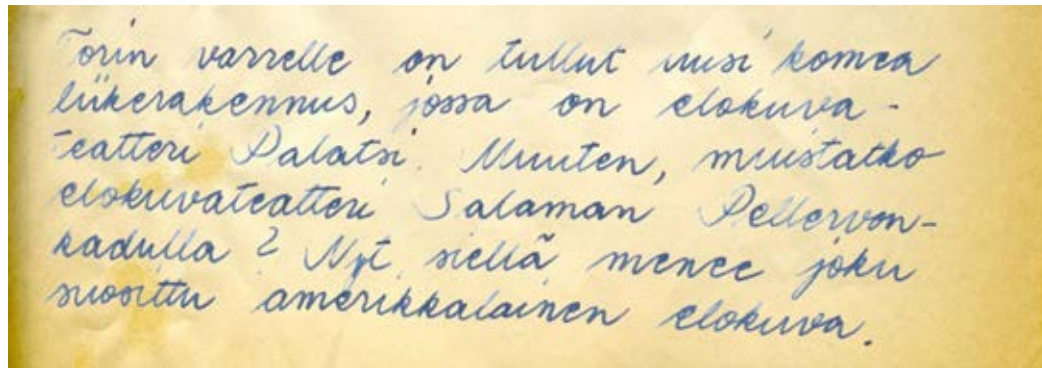 Torin varrelle on tullut uusi komea
liikerakennus, jossa on elokuva-
teatteri Palatsi. Muuten, muistatko
elokuvateatteri Salaman Pellervon-
kadulla? Nyt siellä menee joku
suosittu amerikkalainen elokuva.